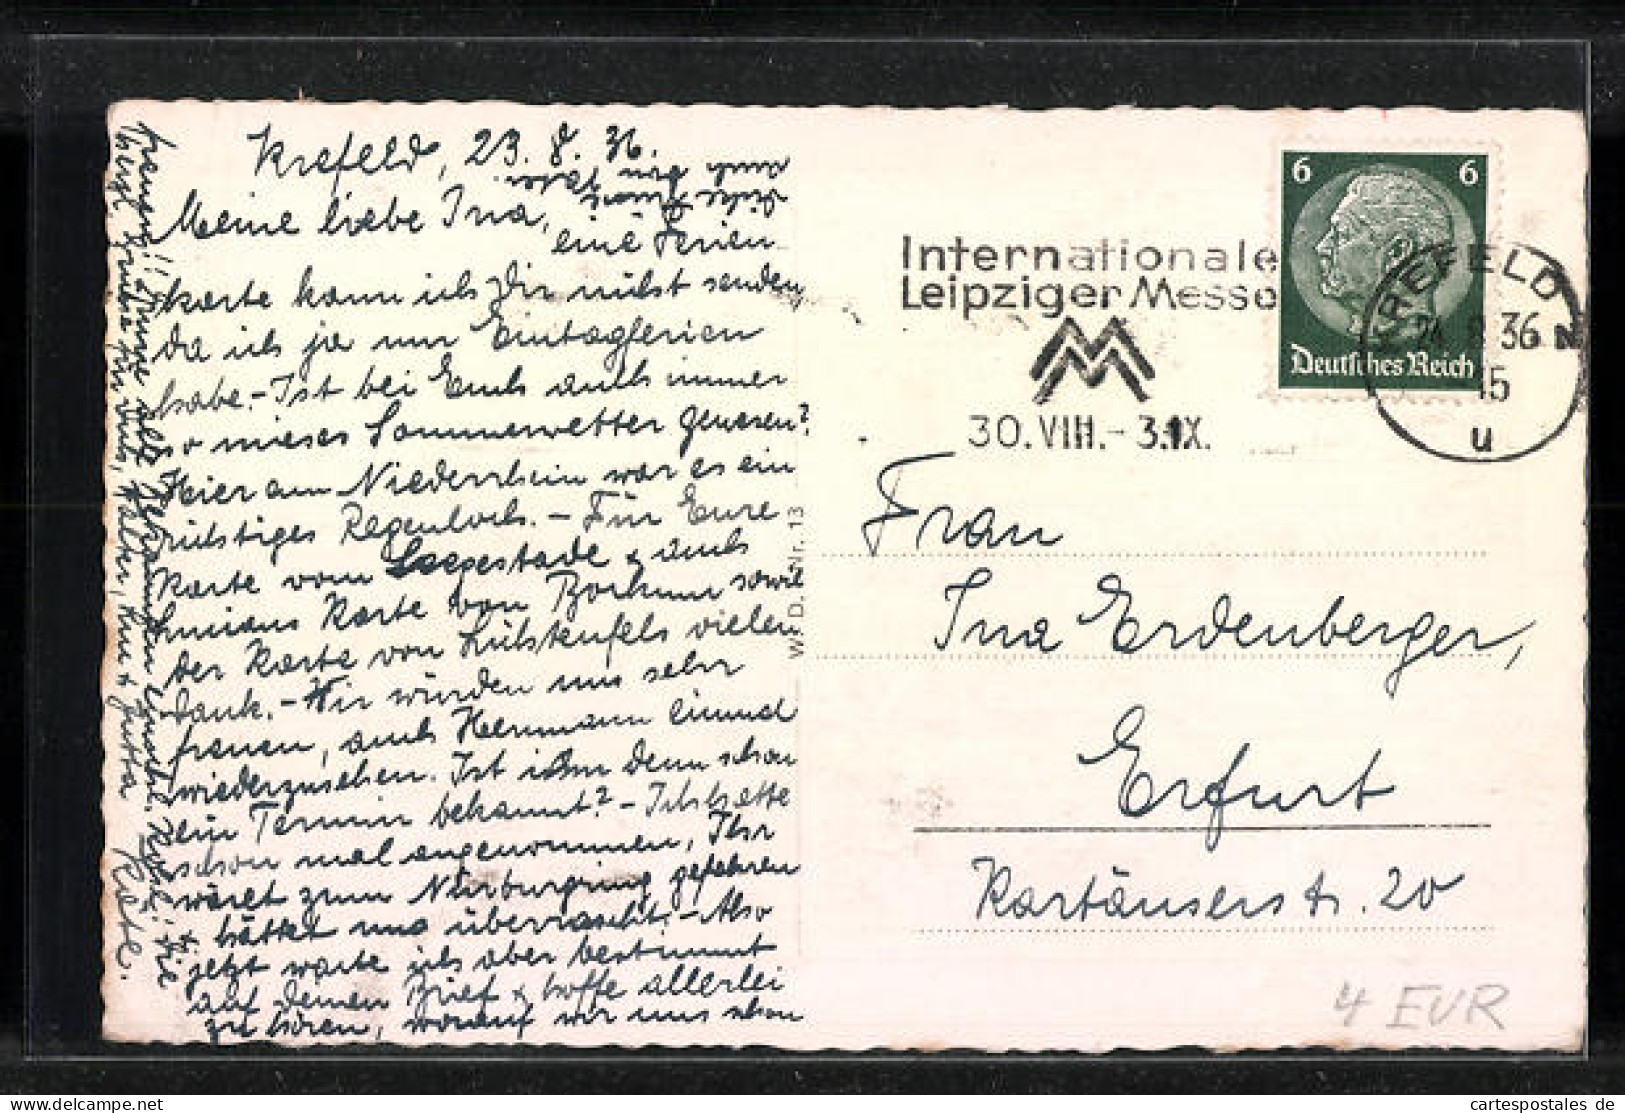 Krefeld, 23. 8. 36.
Meine liebe Ina,
eine Ferien
karte kann ich Dir nicht senden,
da ich ja nur Eintagferien
habe. - Ist bei Euch auch immer
so mieses Sommerwetter gewesen?
Hier am Niederrhein war es ein
richtiges Regenloch. - Für Eure
Karte vom Seegestade & auch
Karte von Borkum sowie
der Karte von Lüstenfels vielen
Dank. - Wir würden uns sehr
freuen, auch Hermann einmal
wiederzusehen. Ist ihm denn schon
ein Termin bekannt? - Ich hatte
schon mal angenommen, Ihr
wäret zum Nürburgring gefahren
& hättet uns überrascht. - Also
jetzt warte ich aber bestimmt
auf Deinen Brief & hoffe allerlei
zu hören, worauf wir uns schon
freuen!!
herzl. Grüße für Dich, Walter, & Jutta Käte.
W. D. Nr. 13
Internationale
Leipziger Messe
MM
30. VIII. - 3. IX.
6 6
Deutsches Reich
KREFELD
24. 8. 36
15
N
u
Frau
Ina Erdenberger,
Erfurt
Kartäuserstr. 20
4 EUR
the delcampe marketplace
cartespostales de